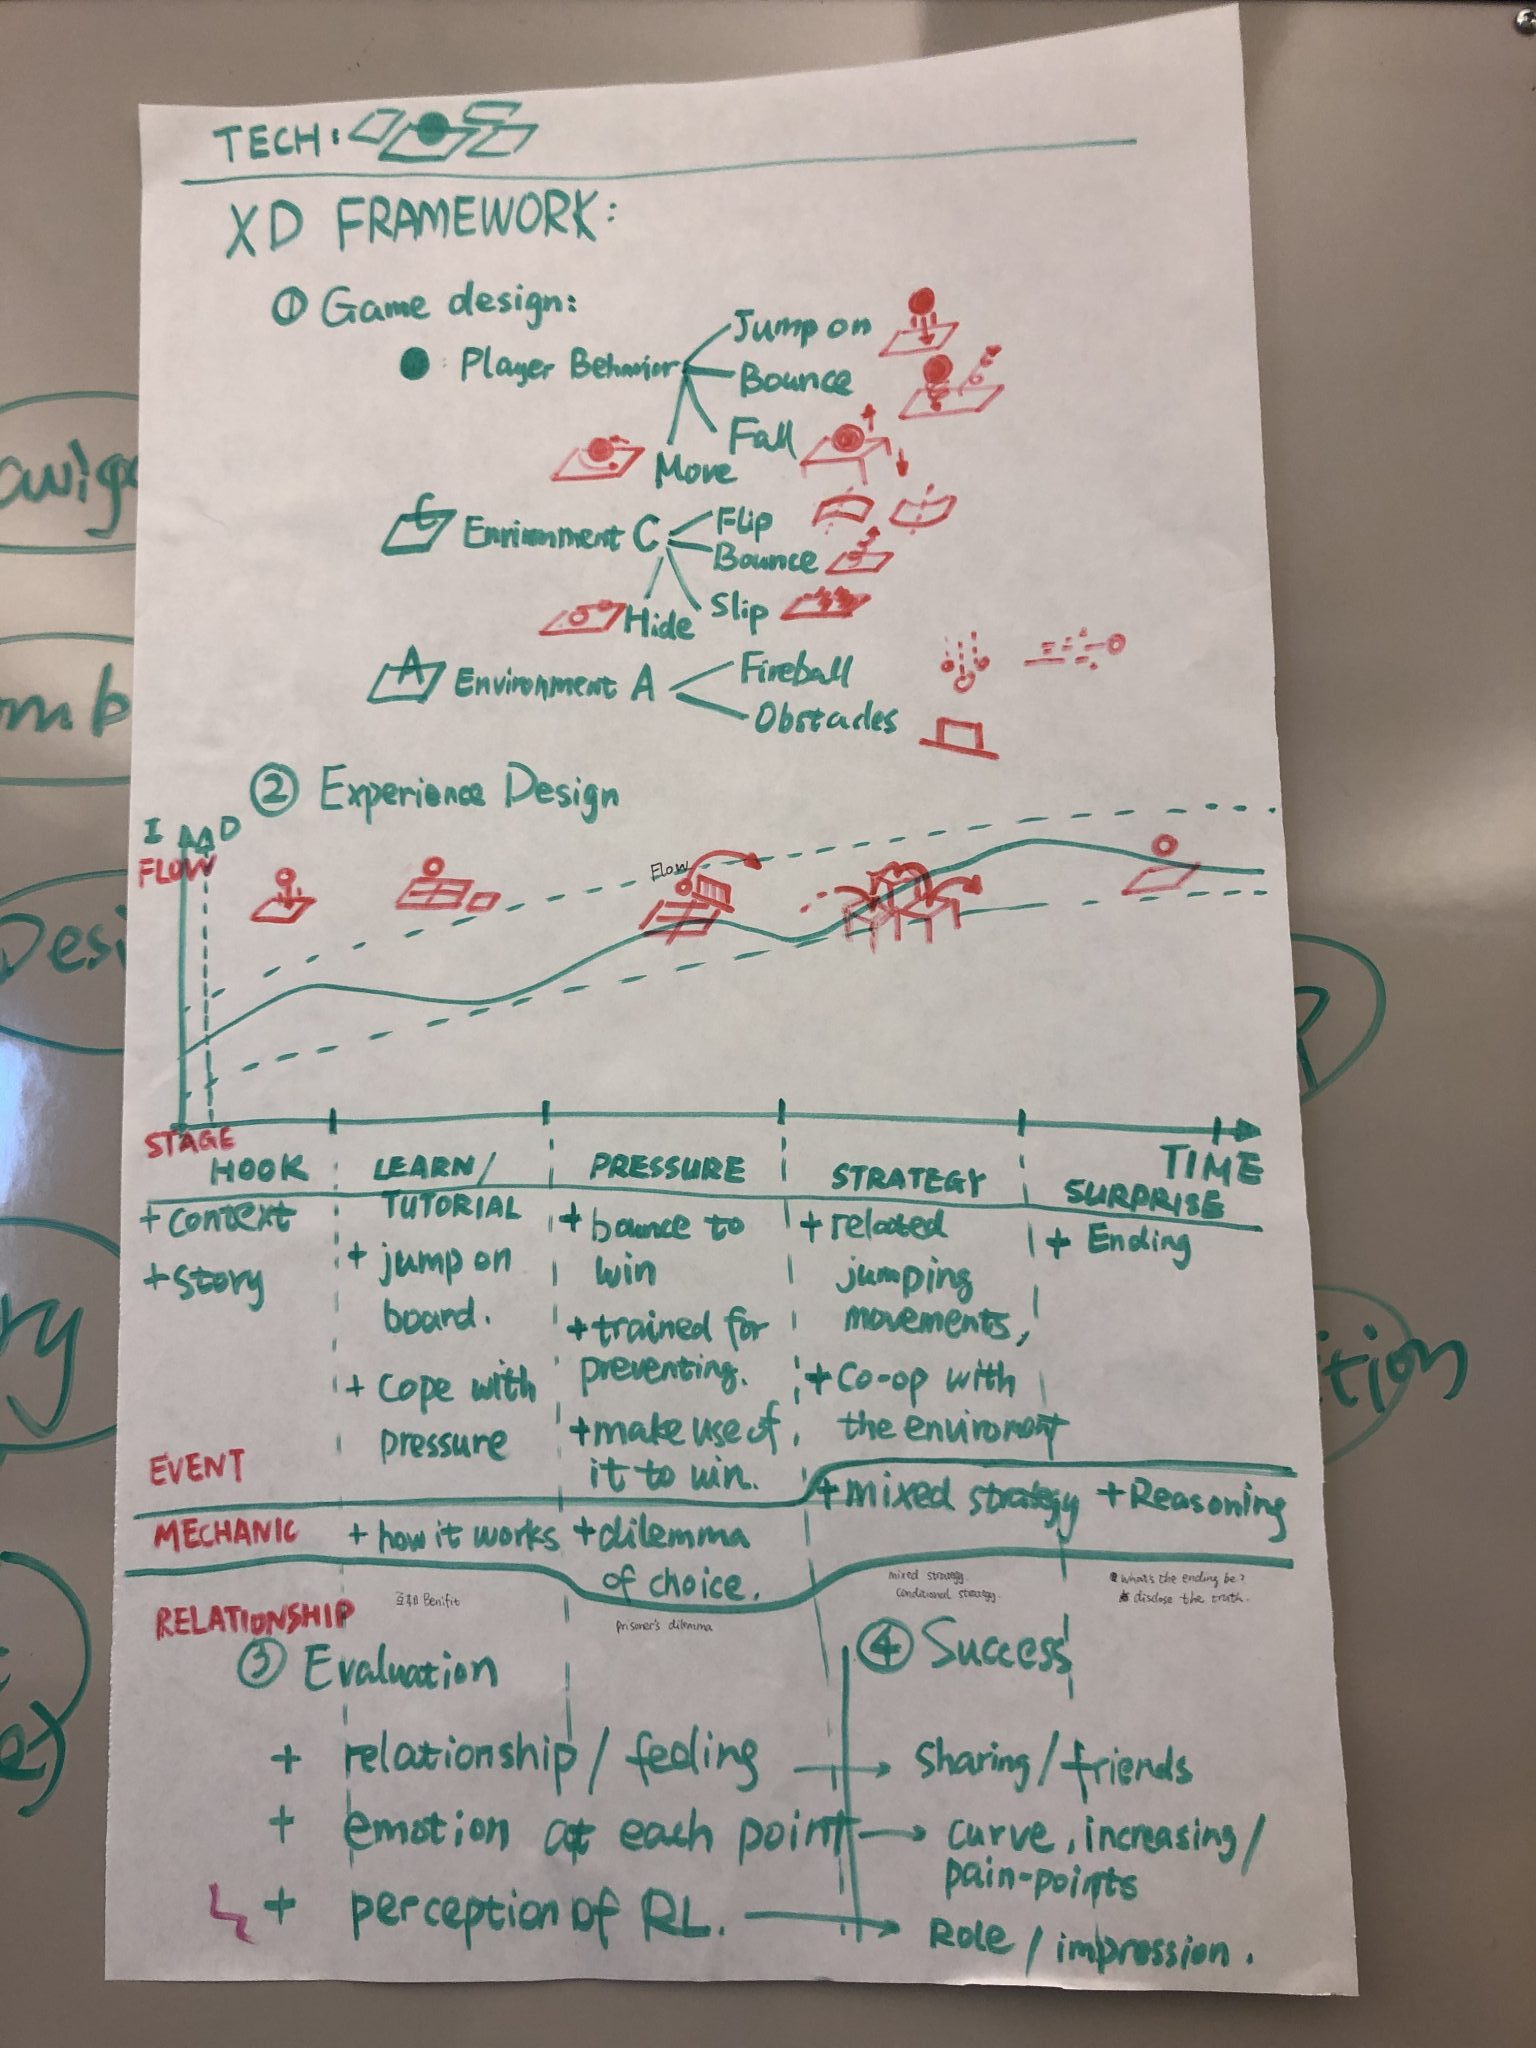 TECH:
XD FRAMEWORK:
① Game design:
Player Behavior
Jump on
Bounce
Fall
Move
C
Envrionment C
Flip
Bounce
Slip
Hide
A
Environment A
Fireball
Obstacles
② Experience Design
I
D
FLOW
Flow
STAGE
HOOK
LEARN/
TUTORIAL
PRESSURE
STRATEGY
TIME
SURPRISE
+ context
+ story
+ jump on
board.
+ cope with
pressure
+ bounce to
win
+ trained for
preventing.
+ make use of
it to win.
+ related
jumping
movements,
+ Co-op with
the enviroment
+ Ending
EVENT
MECHANIC
+ how it works
+ dilemma
of choice.
+ mixed strategy
+ Reasoning
RELATIONSHIP
Benifit
prisoner's dilemma
mixed strategy
conditional strategy
what's the ending be?
disclose the truth.
③ Evaluation
+ relationship / feeling
+ emotion at each point
+ perception of RL.
④ Success
Sharing / friends
curve, increasing /
pain-points
Role / impression.